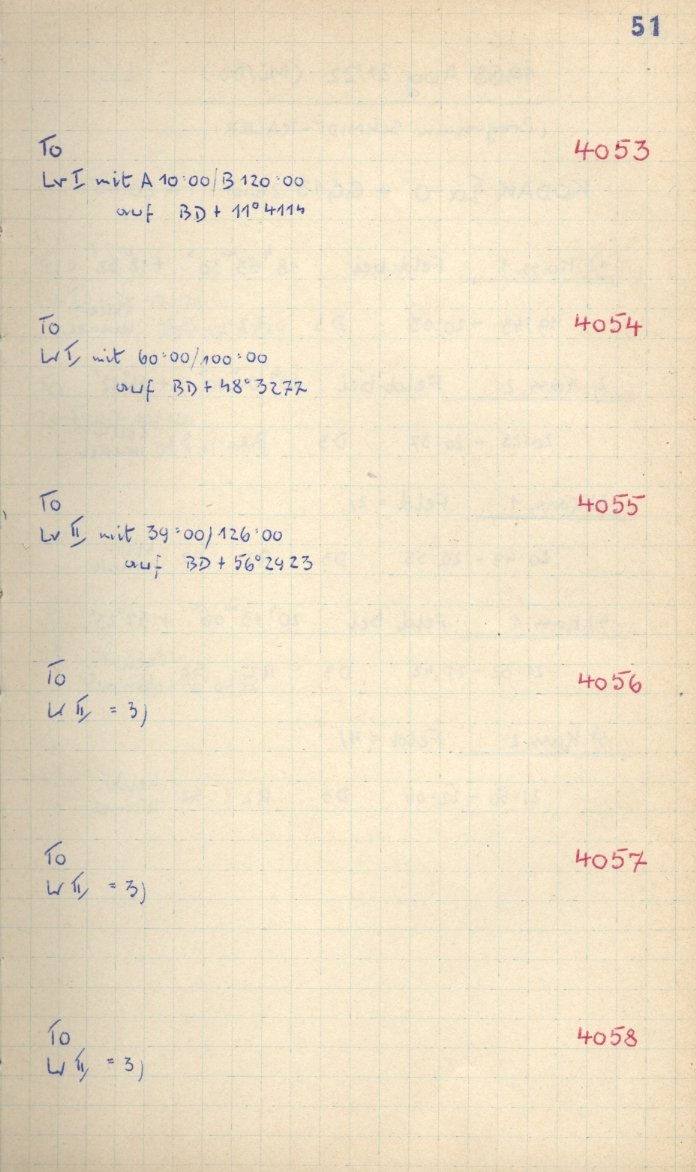 51
To 4053
Lr I mit A 10:00/B 120:00
auf BD + 11° 4114
To 4054
Lr I, mit 60:00/100:00
auf BD + 48° 3277
To 4055
Lr II, mit 39:00/126:00
auf BD + 56° 2923
To 4056
Lr II, = 3)
To 4057
Lr II, = 3)
To 4058
Lr II, = 3)